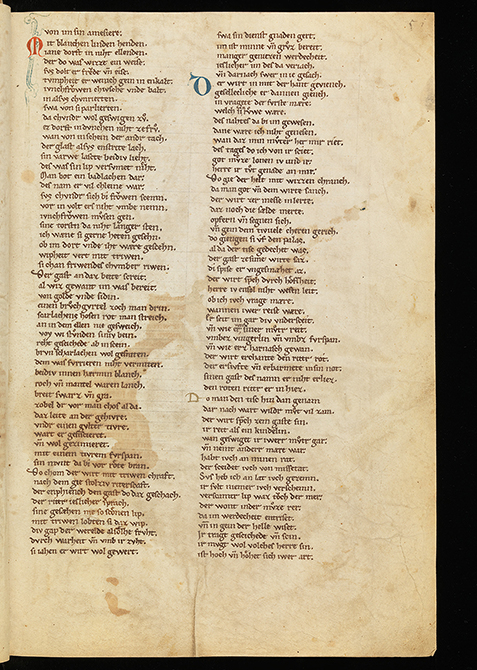 von im sin amesiere;
Mit blanchen linden henden.
iane dorft in niht ellenden.
der do was witze ein weise.
svs dolt er frevde vn eise.
tvmpheit er wenich gein in enkalt;
ivnchfrowen chivsche vnde balt.
in alsvs chvnrierten.
swa von si parlierten.
da chvnder wol geswigen zv.
ez dorft in dvnchen niht ze frv.
wan von in schein der ander tach.
der glast alsvs en strite lach,
sin varwe laschte beidiv lieht.
des was sin lip versvmet niht.
Man bot ein badlachen dar;
des nam er vil chleine war.
svs chvnder sich bi frowen schemn.
vor in wolt ers niht vmbe nemn.
ivnchfrowen mvsen gen.
sine torsten da niht langer sten.
ich wæne si gerne heten gesehn.
ob im dort vnde iht wære geschehn.
wipheit vert mit triwen.
si chan friwendes chvmber riwen.
Der gast an daz bette schreit.
al wiz gewant im was bereit.
von golde vnde sidin.
einen brvchgvrtel zoch man drin.
scharlachens hosen rot man streich.
an in dem ellen nie gesweich.
avoy wi stvnden siniv bein.
reht geschickede ab in schein.
brvn scharlachen wol gesniten.
dem was fvrrieren niht vermiten.
beidiv innen harmin blanch.
roch vn mantel waren lanch.
breit swarz vn gra.
zobel dr vor man chos al da.
daz leite an der gehivre.
vnder einen gvrtel tivre.
wart er gefischieret.
vn wol gezimieret.
mit einem tivren fvrspan.
sin mvnt da bi vor rœte bran.
Do chom der wirt mit triwen chraft.
nach dem gie stolziv riterschaft.
der enphiench den gast do daz geschach.
der riter ieslicher sprach.
sine gesæhen nie so schonen lip.
mit triwen lobten si daz wip.
div gap der werelde alsolhe frvht.
dvrch warheit vn vmb ir zvht.
si iahen er wirt wol gewert.
swa sin dienst gnaden gert;
im ist minne vn grvz bereit.
mager geniezen werdecheit.
ieslicher im des da veriach.
vn darnach swer in ie gesach.
Der wirt in mit der hant geviench.
geselleclich er dannen giench.
in vragete der fvrste mære;
welch sin rvwe wære.
des nahtes da bi im gewesen.
dane wær ich niht genesen.
wan daz min mvter her mir riet;
des tages do ich von ir sciet.
got mvze lonen iv vnd ir.
herre ir tvt genade an mir.
Do gie der helt mit witzen chranch.
da man got vn dem wirte sanch.
der wirt zer messe in lerte;
daz noch die sælde merte.
opfern vn segnen sich.
vn gein dem tivvele cheren gerich.
do giengen si vf den palas.
al da der tisc gedechet was;
der gast ze sime wirte saz.
di spise er vngesmæhet az.
der wirt sprach dvrch hofscheit;
herre iv ensol niht wesen leit.
ob ich ivch vrage mære.
wannen iwer reise wære.
er seit im gar div vnderscheit.
vn wie er siner mvter reit.
vmbez vingerlin vn vmbz fvrspan.
vn wie erz harnasch gewan.
der wirt erchante den riter rot.
der ersivfte vn erbarmete in sin not;
sinen gast des namn er niht erliez.
den roten riter er in hiez.
Do man den tisc hin dan genam.
dar nach wart wilder mvt vil zam.
der wirt sprach zem gaste sin.
ir redt als ein kindelin.
wan geswiget ir iwerr mvter gar.
vn nemt anderr mære war.
habt ivch an minen rat.
der scheidet ivch von missetat.
Svs heb ich an lat ivchs gezemn.
ir svlt niemer ivch verschemn.
verschamter lip waz tovch der mer.
der wont inder mvze rer.
da im werdecheit entriset.
vn in gein der helle wiset.
Ir tragt geschickede vn schin.
ir mvgt wol volches herre sin.
ist hoch vn hohet sich iwer art;